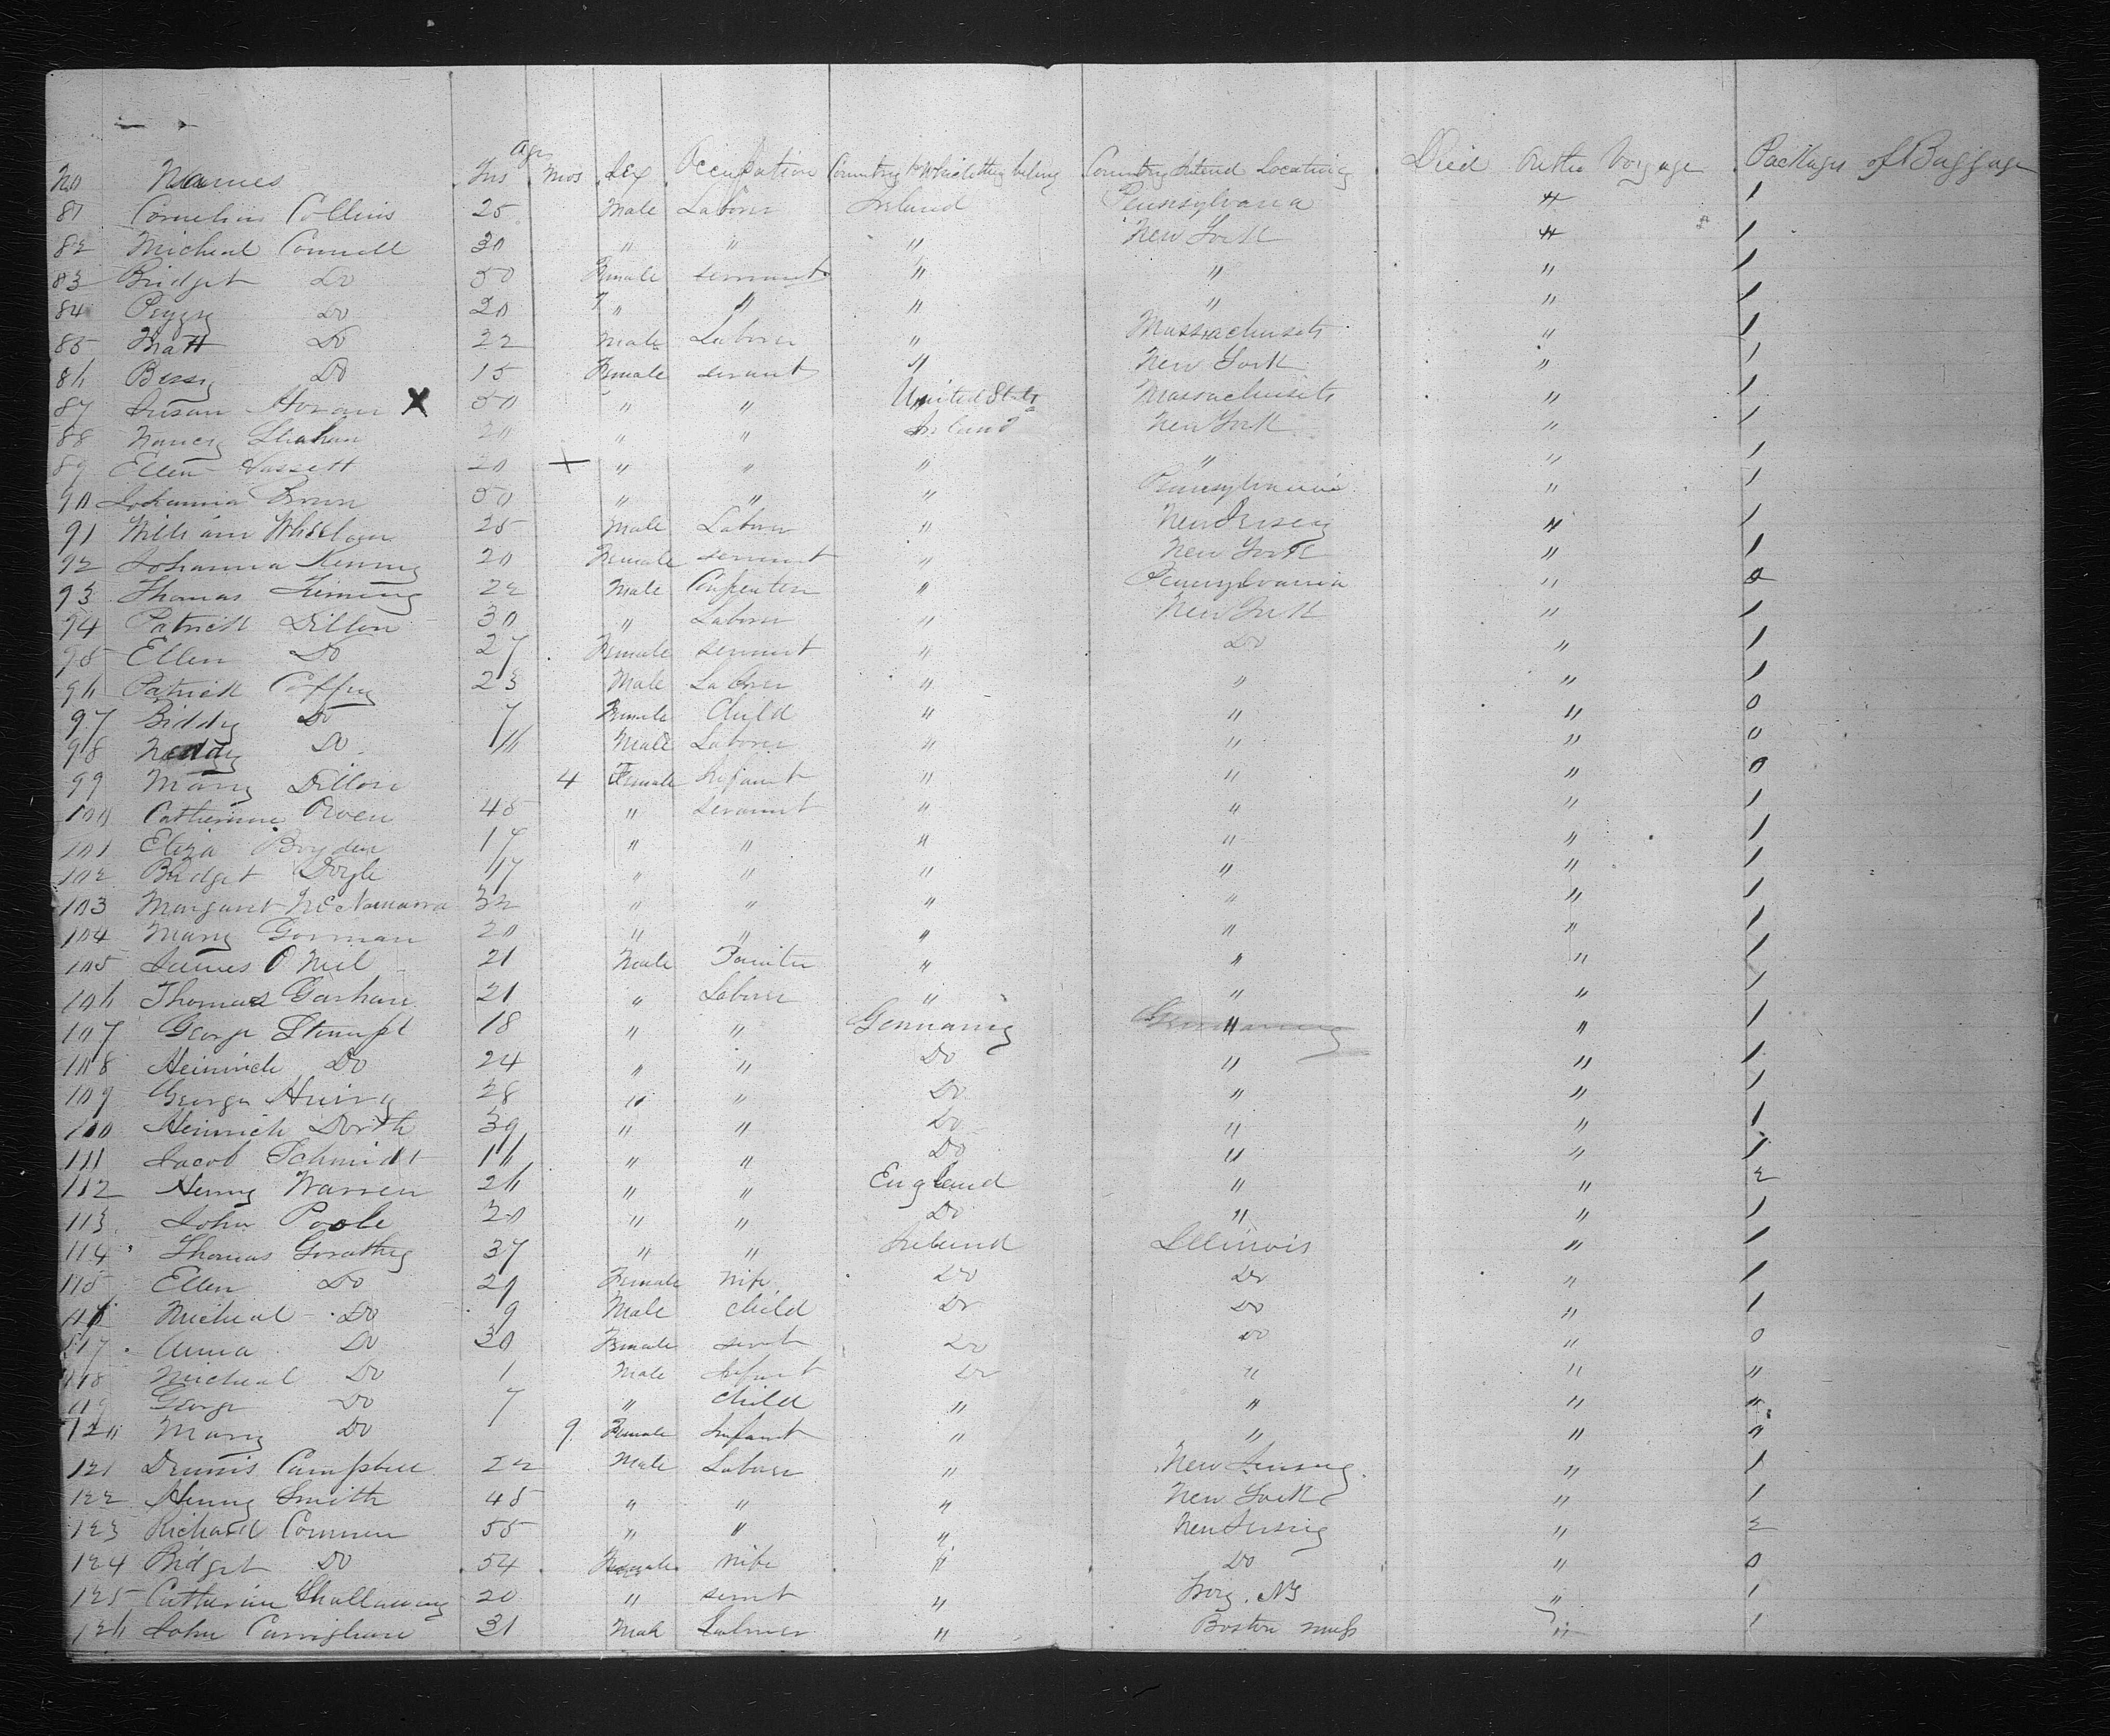 Age
No Names Yrs Mos Sex Occupation Country to which they belong Country Intend Locating Died on the Voyage Packages of Baggage
81 Cornelius Collins 25 Male Laborer Ireland Pennsylvania " 1
82 Micheal Connell 30 " " " New York " 1
83 Bridget Do 50 Female servant " " " 1
84 Peggy Do 20 " " " " " 1
85 Matt Do 22 Male Laborer " Massachusets " 1
86 Bessy Do 15 Female servant " New York " 1
87 Susan Horan X 50 " " United States Massachusets " 1
88 Nancy " " Ireland New York " 1
89 Ellen 20 + " " " " " 1
90 Johanna Brown 50 " " " Pennsylvania " 1
91 William Whelan 25 Male Laborer " New Jersey " 1
92 Johanna 20 Female servant " New York " 1
93 Thomas 22 Male Carpenter " Pennsylvania " 0
94 Patrick Dillon 30 " Laborer " New York " 1
95 Ellen Do 27 Female servant " Do " 1
96 Patrick Coffey 23 Male Laborer " " " 1
97 Biddy Do 7 Female Child " " " 0
98 Neddy Do 16 Male Laborer " " " 0
99 Mary Dillon 4 Female Infant " " " 0
100 Catherine Owen 45 " servant " " " 1
101 Eliza Boyden 17 " " " " " 1
102 Bridget Doyle 17 " " " " " 1
103 Margaret McNamara 32 " " " " " 1
104 Mary Gorman 20 " " " " " 1
105 James O Neil 21 Male Painter " " " 1
106 Thomas 21 " Laborer " " " 1
107 George Stumpf 18 " " Germany Germany " " 1
108 Heinrich Do 24 " " Do " " 1
109 George 28 " " Do " " 1
110 Heinrich Dorth 39 " " Do " " 1
111 Jacob Schmidt 16 " " Do " " 1
112 Henry Warren 26 " " England " " 2
113 John Poole 20 " " Do " " 1
114 Thomas 37 " " Ireland Illinois " 1
115 Ellen Do 29 Female wife Do Do " 1
116 Micheal Do 9 Male child Do Do " 1
117 Anna Do 30 Female servt Do Do " 0
118 Micheal Do 1 Male Infant Do " " "
119 George Do 7 " child " " " "
120 Mary Do 9 Female Infant " " " "
121 Dennis Campbell 22 Male Laborer " New Jersey " 1
122 Henry Smith 45 " " " New York " 1
123 Richard 55 " " " New Jersey " 2
124 Bidget Do 54 Female wife " Do " 0
125 Catherine 20 " servt " Troy. NY " 1
126 John 31 Male Laborer " Boston mass " 1